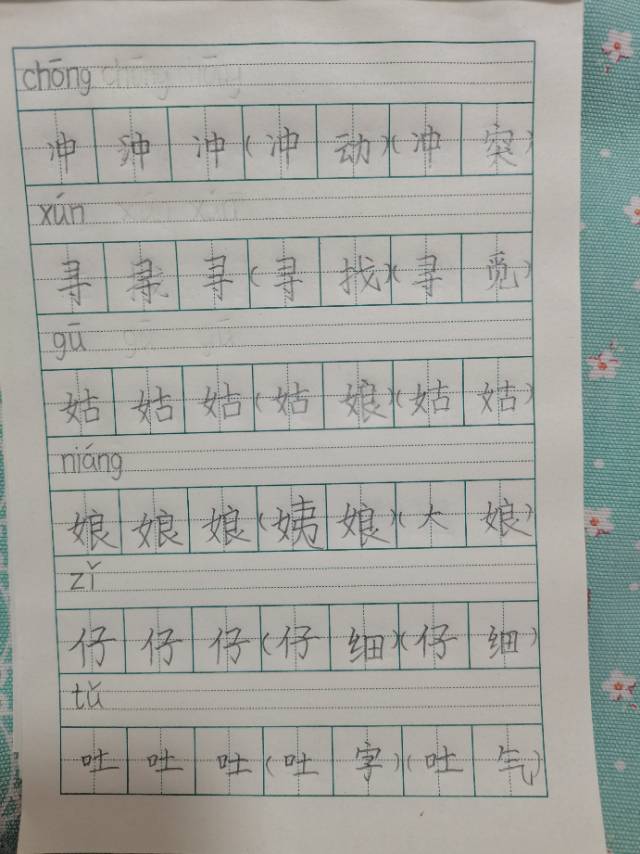 chōng
冲 冲 冲 (冲 动)(冲 突)
xún
寻 寻 寻 (寻 找)(寻 觅)
gū
姑 姑 姑 (姑 娘)(姑 姑)
niáng
娘 娘 娘 (姨 娘)(大 娘)
zǐ
仔 仔 仔 (仔 细)(仔 细)
tǔ
吐 吐 吐 (吐 字)(吐 气)